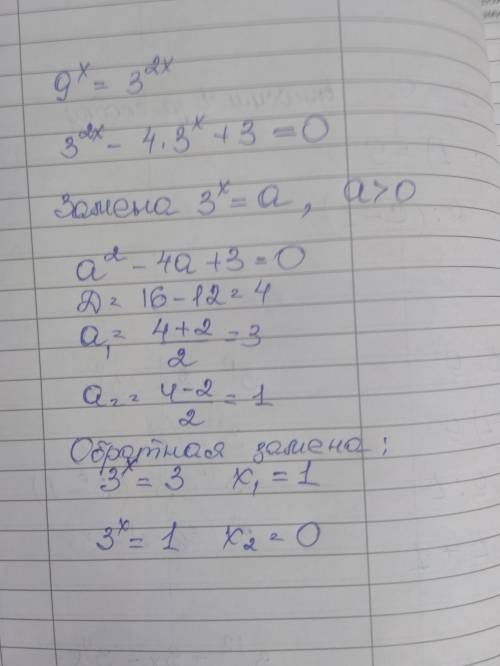 9^x = 3^2x
3^2x - 4·3^x + 3 = 0
Замена 3^x = a, a>0
a^2 - 4a + 3 = 0
D = 16 - 12 = 4
a₁ = (4+2)/2 = 3
a₂ = (4-2)/2 = 1
Обратная замена:
3^x = 3 x₁ = 1
3^x = 1 x₂ = 0